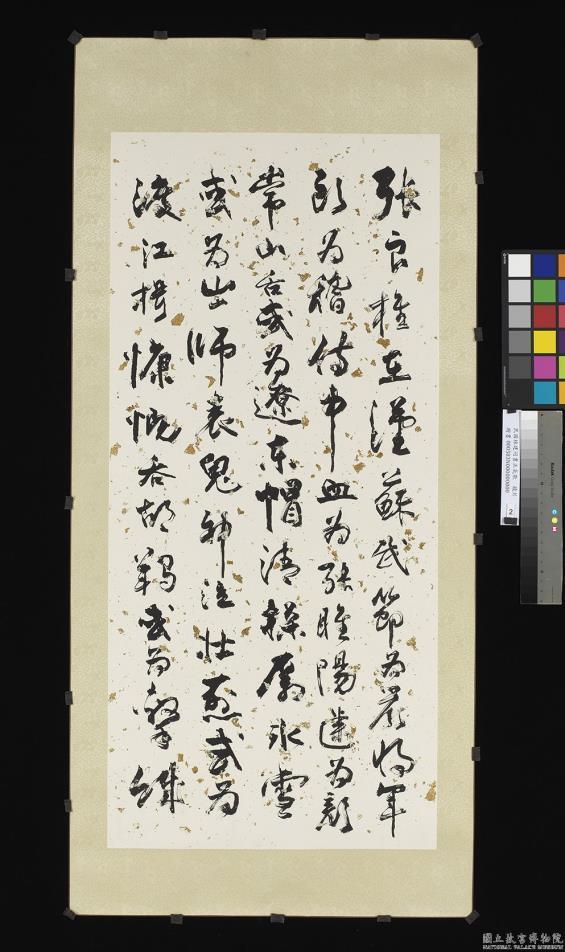 張良椎在漢蘇武節為嚴將軍
頭為稽侍中血為張睢陽齒為顏
常山舌或為遼東帽清操厲冰雪
或為出師表鬼神泣壯烈或為
渡江楫慷慨吞胡羯或為擊賊
Kodak
2
國立故宮博物院
NATIONAL PALACE MUSEUM